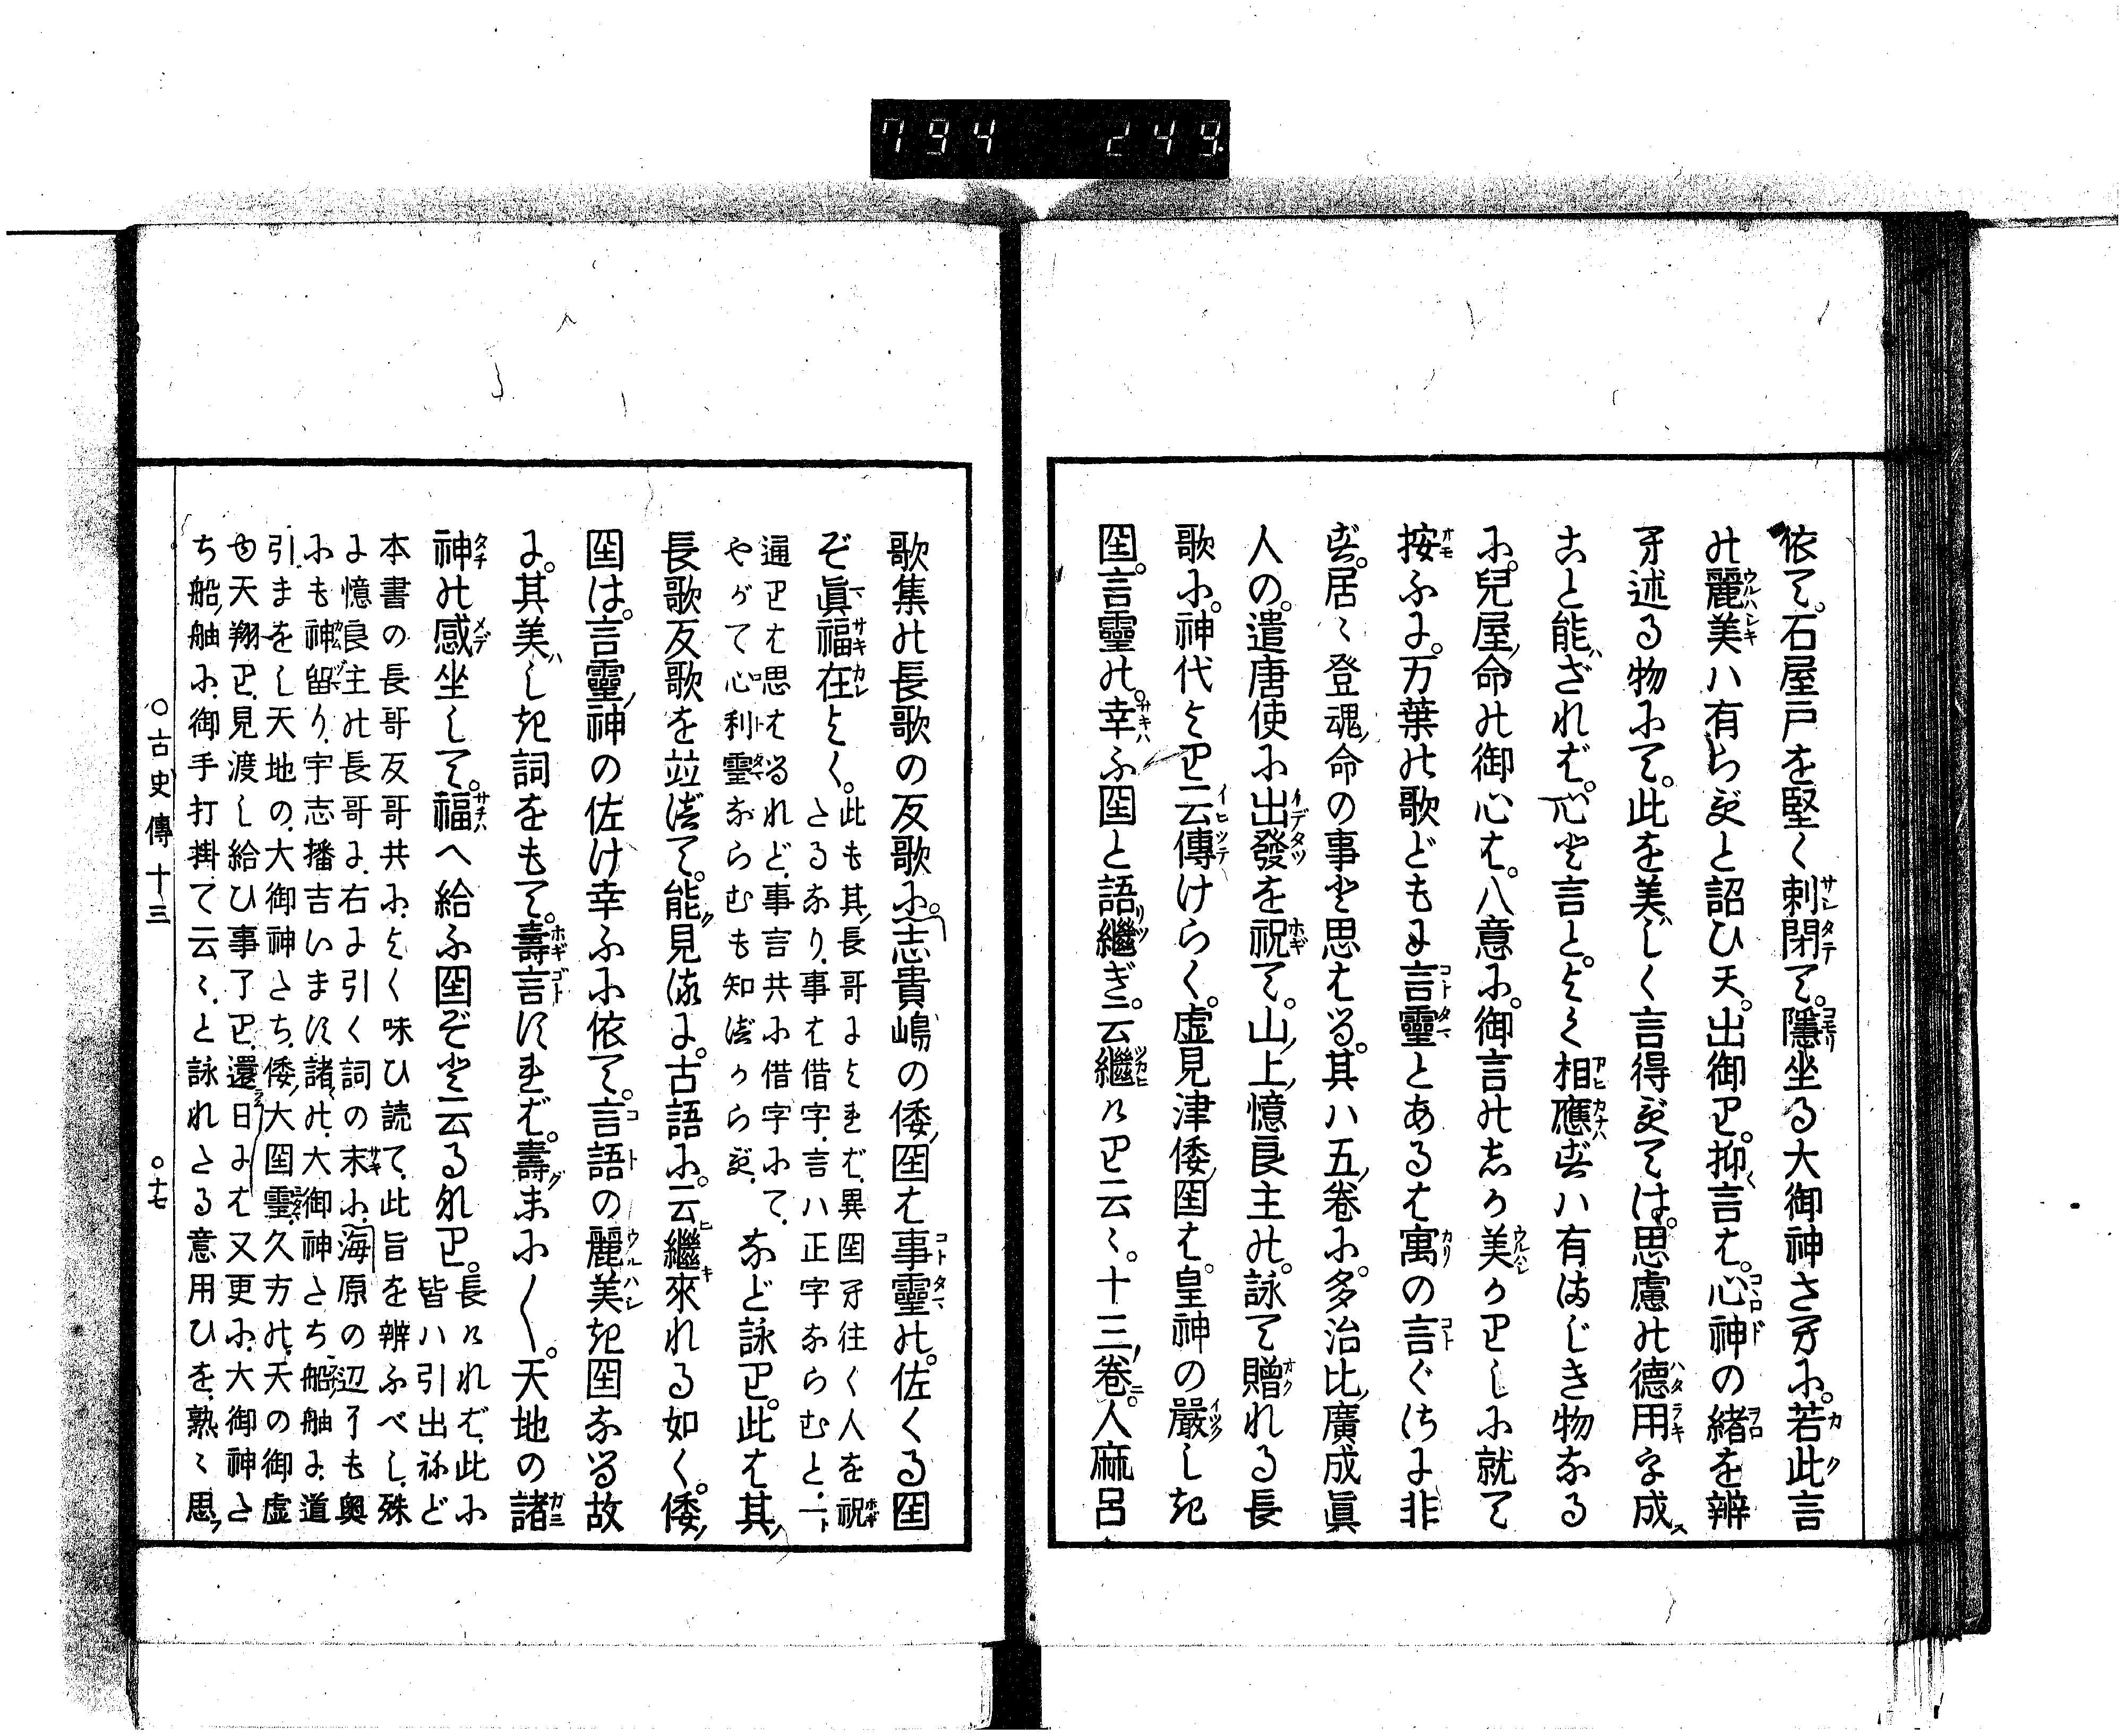 794 249.
依て。石屋戸を堅く刺閉て。隱坐る大御神さへに。若此言
の麗美ハ有らずと詔ひ天。出御り。抑言は。心神の緒を辨
へ述る物にて。此を美じく言得ずては。思慮の德用を成
こと能ざれば。心と言と。よく相應ずハ有まじき物なる
に。兒屋命の御心は。八意に。御言のしか美かりしに就て
按ふに。万葉の歌どもに言靈とあるは寓の言ぐさに非
ず。居〻登魂命の事と思はる。其ハ五卷に。多治比廣成眞
人の。遣唐使に出發を祝て。山上憶良主の。詠て贈れる長
歌に。神代より云傳けらく。虚見津倭國は。皇神の嚴しき
國。言靈の。幸ふ國と語繼ぎ。云繼けり云〻。十三卷。人麻呂
歌集の長歌の反歌に。志貴嶋の倭國は事靈の。佐くる國
ぞ眞福在よく。
此も其長哥によれば、異國へ往く人を祝
たるなり、事は借字、言ハ正字ならむと、一ト
通りは思はるれど、事言共に借字にて、
やがて心利靈ならむも知べからず、
など詠り。此は其
長歌反歌を竝べて。能見るに。古語に。云繼來れる如く。倭
國は。言靈神の佐け幸ふに依て。言語の麗美き國なる故
に。其美しき詞をもて。壽言すれば。壽まに〱。天地の諸
神の感坐して。福へ給ふ國ぞと云るなり。
長ければ、此に
皆ハ引出ねど
本書の長哥反哥共に、よく味ひ読て、此旨を辨ふべし、殊
に憶良主の長哥に、右に引く詞の末に、海原の辺にも奥
にも神留り、宇志播吉います諸の、大御神たち、船舳に、道
引まをし天地の、大御神たち、倭大國靈、久方の、天の御虚
ゆ天翔り、見渡し給ひ事了り、還日には又更に、大御神た
ち船舳に、御手打掛て云〻、と詠れたる意用ひを、熟〻思
○古史傳十三
○十七